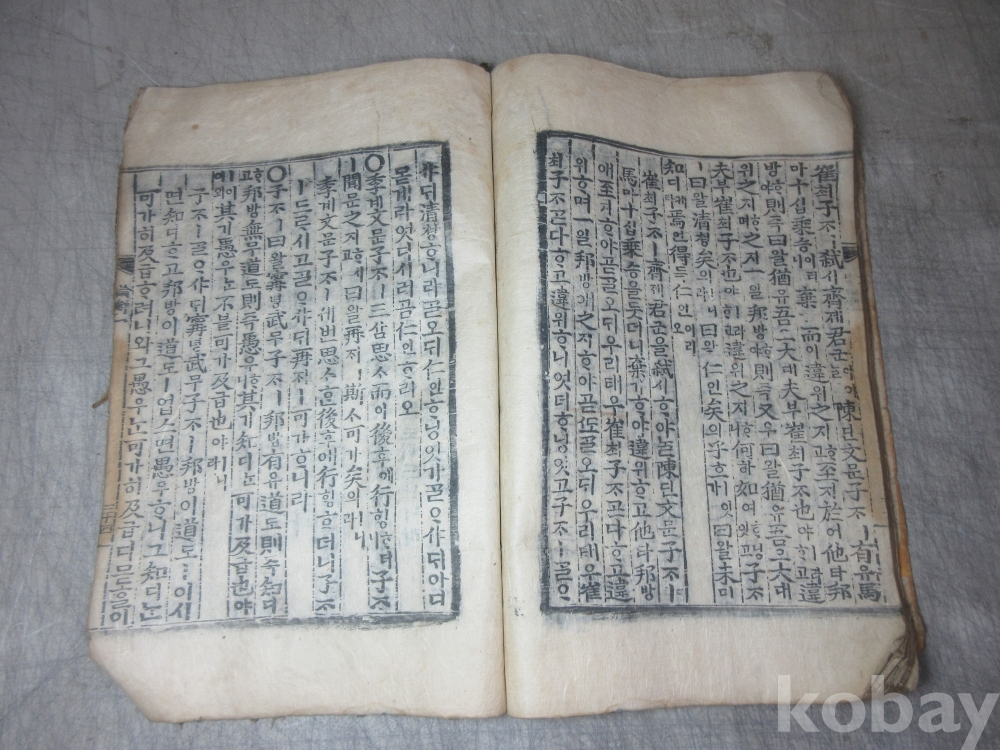 崔최子ᄌᆞㅣ弑시齊졔君군 陳딘文문子ᄌᆞㅣ有유馬
마十십乘승이러니棄기而이違위之지ᄒᆞ고至지於어他타邦
방ᄒᆞ야則즉曰왈猶유吾오大대夫부崔최子ᄌᆞ也야ㅣ라ᄒᆞ고違
위之지ᄒᆞ며之지一일邦방ᄒᆞ야則즉又우曰왈猶유吾오大대
夫부崔최子ᄌᆞ也야ㅣ라ᄒᆞ고違위之지ᄒᆞ니何하如여ᄒᆞ니잇고子ᄌᆞ
ㅣ曰왈淸쳥矣의니라曰왈仁인矣의乎호ㅣ잇가曰왈未미
知디케라焉언得득仁인이리오
崔최子ᄌᆞㅣ齊졔君군을弑시ᄒᆞ야ᄂᆞᆯ陳딘文문子ᄌᆞㅣ
馬마十십乘승을둣더니棄기ᄒᆞ야違위ᄒᆞ고他타邦방
애至지ᄒᆞ야ᄀᆞᆯ오ᄃᆡ우리태우崔최子ᄌᆞᄀᆞᆮ다ᄒᆞ고違
위ᄒᆞ며一일邦방애之지ᄒᆞ야ᄯᅩᄀᆞᆯ오ᄃᆡ우리태우崔
최子ᄌᆞᄀᆞᆮ다ᄒᆞ고違위ᄒᆞ니엇더ᄒᆞ니잇고子ᄌᆞㅣᄀᆞᆯᄋᆞ
샤ᄃᆡ淸쳥ᄒᆞ니라ᄀᆞᆯ오ᄃᆡ仁인ᄒᆞ니잇가ᄀᆞᆯᄋᆞ샤ᄃᆡ아디
몯게라엇디시러곰仁인ᄒᆞ리오
○季계文문子ᄌᆞㅣ三삼思ᄉᆞ而이後후에行ᄒᆡᆼᄒᆞ더니子ᄌᆞ
ㅣ聞문之지ᄒᆞ시고曰왈再ᄌᆡ斯ᄉᆞ可가矣의니라
季계文문子ᄌᆞㅣ세번思ᄉᆞᄒᆞᆫ後후에行ᄒᆡᆼᄒᆞ더니子ᄌᆞ
ㅣ드르시고ᄀᆞᆯᄋᆞ샤ᄃᆡ再ᄌᆡㅣ可가ᄒᆞ니라
○子ᄌᆞㅣ曰왈甯녕武무子ᄌᆞㅣ邦방有유道도則즉知디
ᄒᆞ고邦방無무道도則즉愚우ᄒᆞ니其기知디ᄂᆞᆫ可가及급也야ㅣ
어니와其기愚우ᄂᆞᆫ不블可가及급也야ㅣ니라
子ᄌᆞㅣᄀᆞᆯᄋᆞ샤ᄃᆡ甯녕武무子ᄌᆞㅣ邦방이道도ㅣ이시
면知디ᄒᆞ고邦방이道도ㅣ업스면愚우ᄒᆞ니그知디ᄂᆞᆫ
可가히及급ᄒᆞ려니와그愚우ᄂᆞᆫ可가히及급디몯ᄒᆞᆯ이
kobay